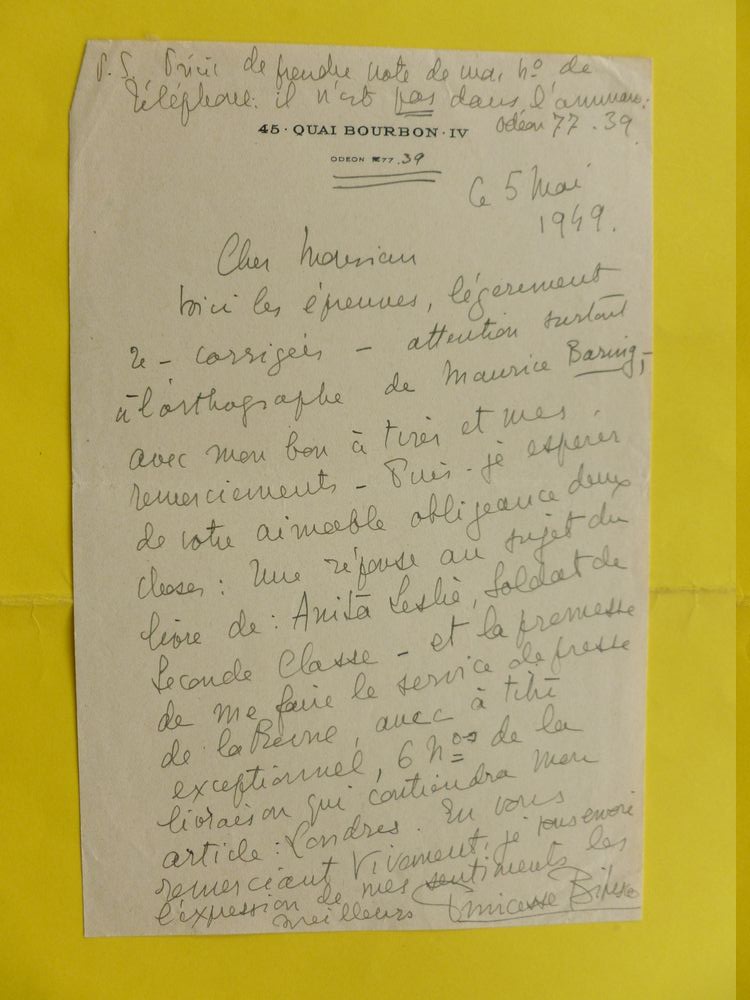 P.S. Prière de prendre note de mon no de
téléphone: il n'est pas dans l'annuaire:
Odéon 77.39.
45 · QUAI BOURBON · IV
ODEON 77.39
Ce 5 Mai
1949.
Cher Monsieur
Voici les épreuves, légèrement
re-corrigées - attention surtout
à l'orthographe de Maurice Baring,-
avec mon bon à tirer et mes
remerciements - Puis-je espérer
de votre aimable obligeance deux
choses: Une réponse au sujet du
livre de: Anita Leslie, Soldat de
Seconde Classe - et la promesse
de me faire le service de presse
de la Revue, avec à titre
exceptionnel, 6 Nos de la
livraison qui contiendra mon
article: Londres. En vous
remerciant vivement, je vous envoie
l'expression de mes sentiments les
meilleurs Princesse Bibesco